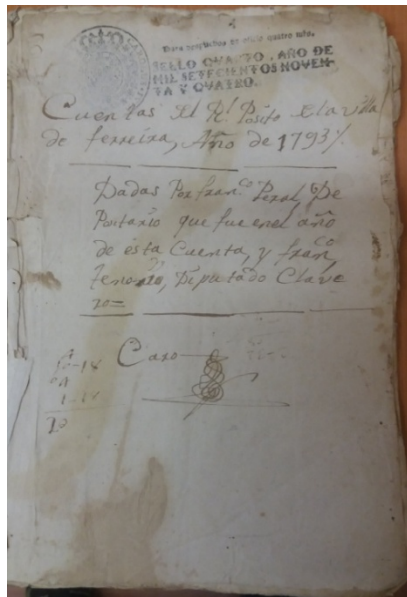 SELLO QVARTO, AÑO DE
MIL SETECIENTOS NOVEN-
TA Y QVATRO.
Cuentas del Rl. Pósito de la villa
de ferreira, Año de 1793
Dadas Por franco Peral, De
Pocitario que fue en el año
de esta Cuenta, y franco
tenorio, Diputado Clave
ro=
Caxo